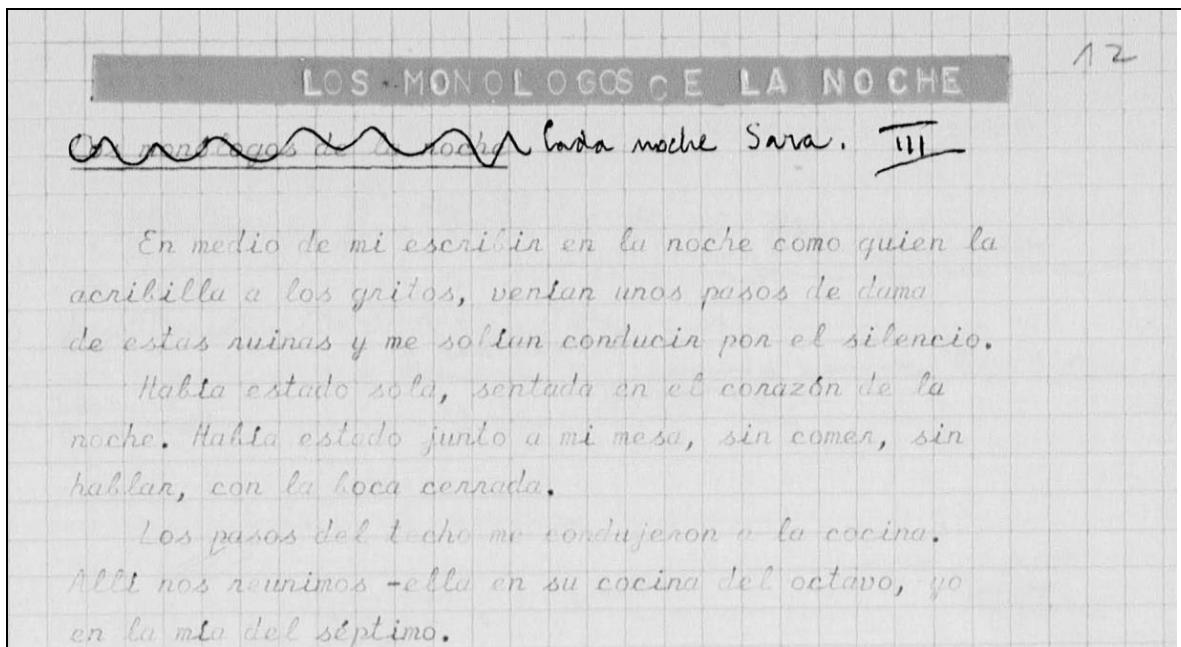 12
LOS MONOLOGOS CE LA NOCHE
Los monólogos de la noche Cada noche Sara. III
En medio de mi escribir en la noche como quien la
acribilla a los gritos, venían unos pasos de dama
de estas ruinas y me solían conducir por el silencio.
Había estado sola, sentada en el corazón de la
noche. Había estado junto a mi mesa, sin comer, sin
hablar, con la boca cerrada.
Los pasos del techo me condujeron a la cocina.
Allí nos reunimos -ella en su cocina del octavo, yo
en la mía del séptimo.